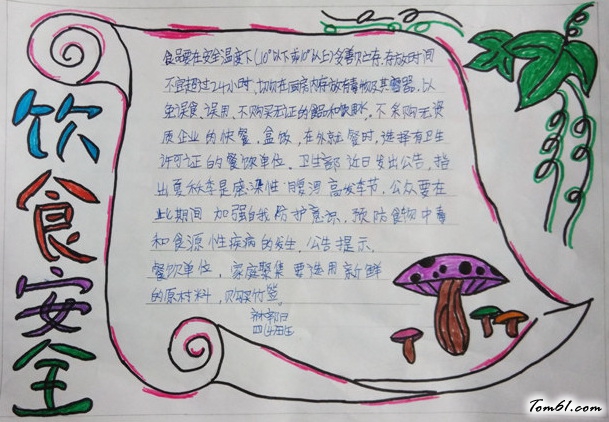 饮食安全
食品要在安全温度下(10°以下或10°以上)妥善贮存,存放时间
不宜超过24小时,切勿在厨房内存放有毒物及其容器,以
免误食、误用,不购买无证的食品和 不采购无资
质企业的快餐、盒饭,在外就餐时,选择有卫生
许可证的餐饮单位,卫生部近日发出公告,指
出夏秋季是感染性腹泻高发季节,公众要在
此期间加强自我防护意识,预防食物中毒
和食源性疾病的发生,公告提示,
餐饮单位,家庭聚集要选用新鲜
的原材料,
Tom61.com